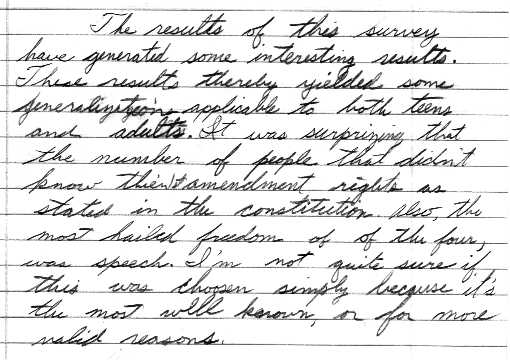 The results of this survey
have generated some interesting results.
These results thereby yielded some
generalizations applicable to both teens
and adults. It was surprizing that
the number of people that didn't
know their 1st amendment rights as
stated in the constitution. Also, the
most hailed freedom of of the four,
was speech. I'm not quite sure if
this was choosen simply because it's
the most well known, or for more
valid reasons.